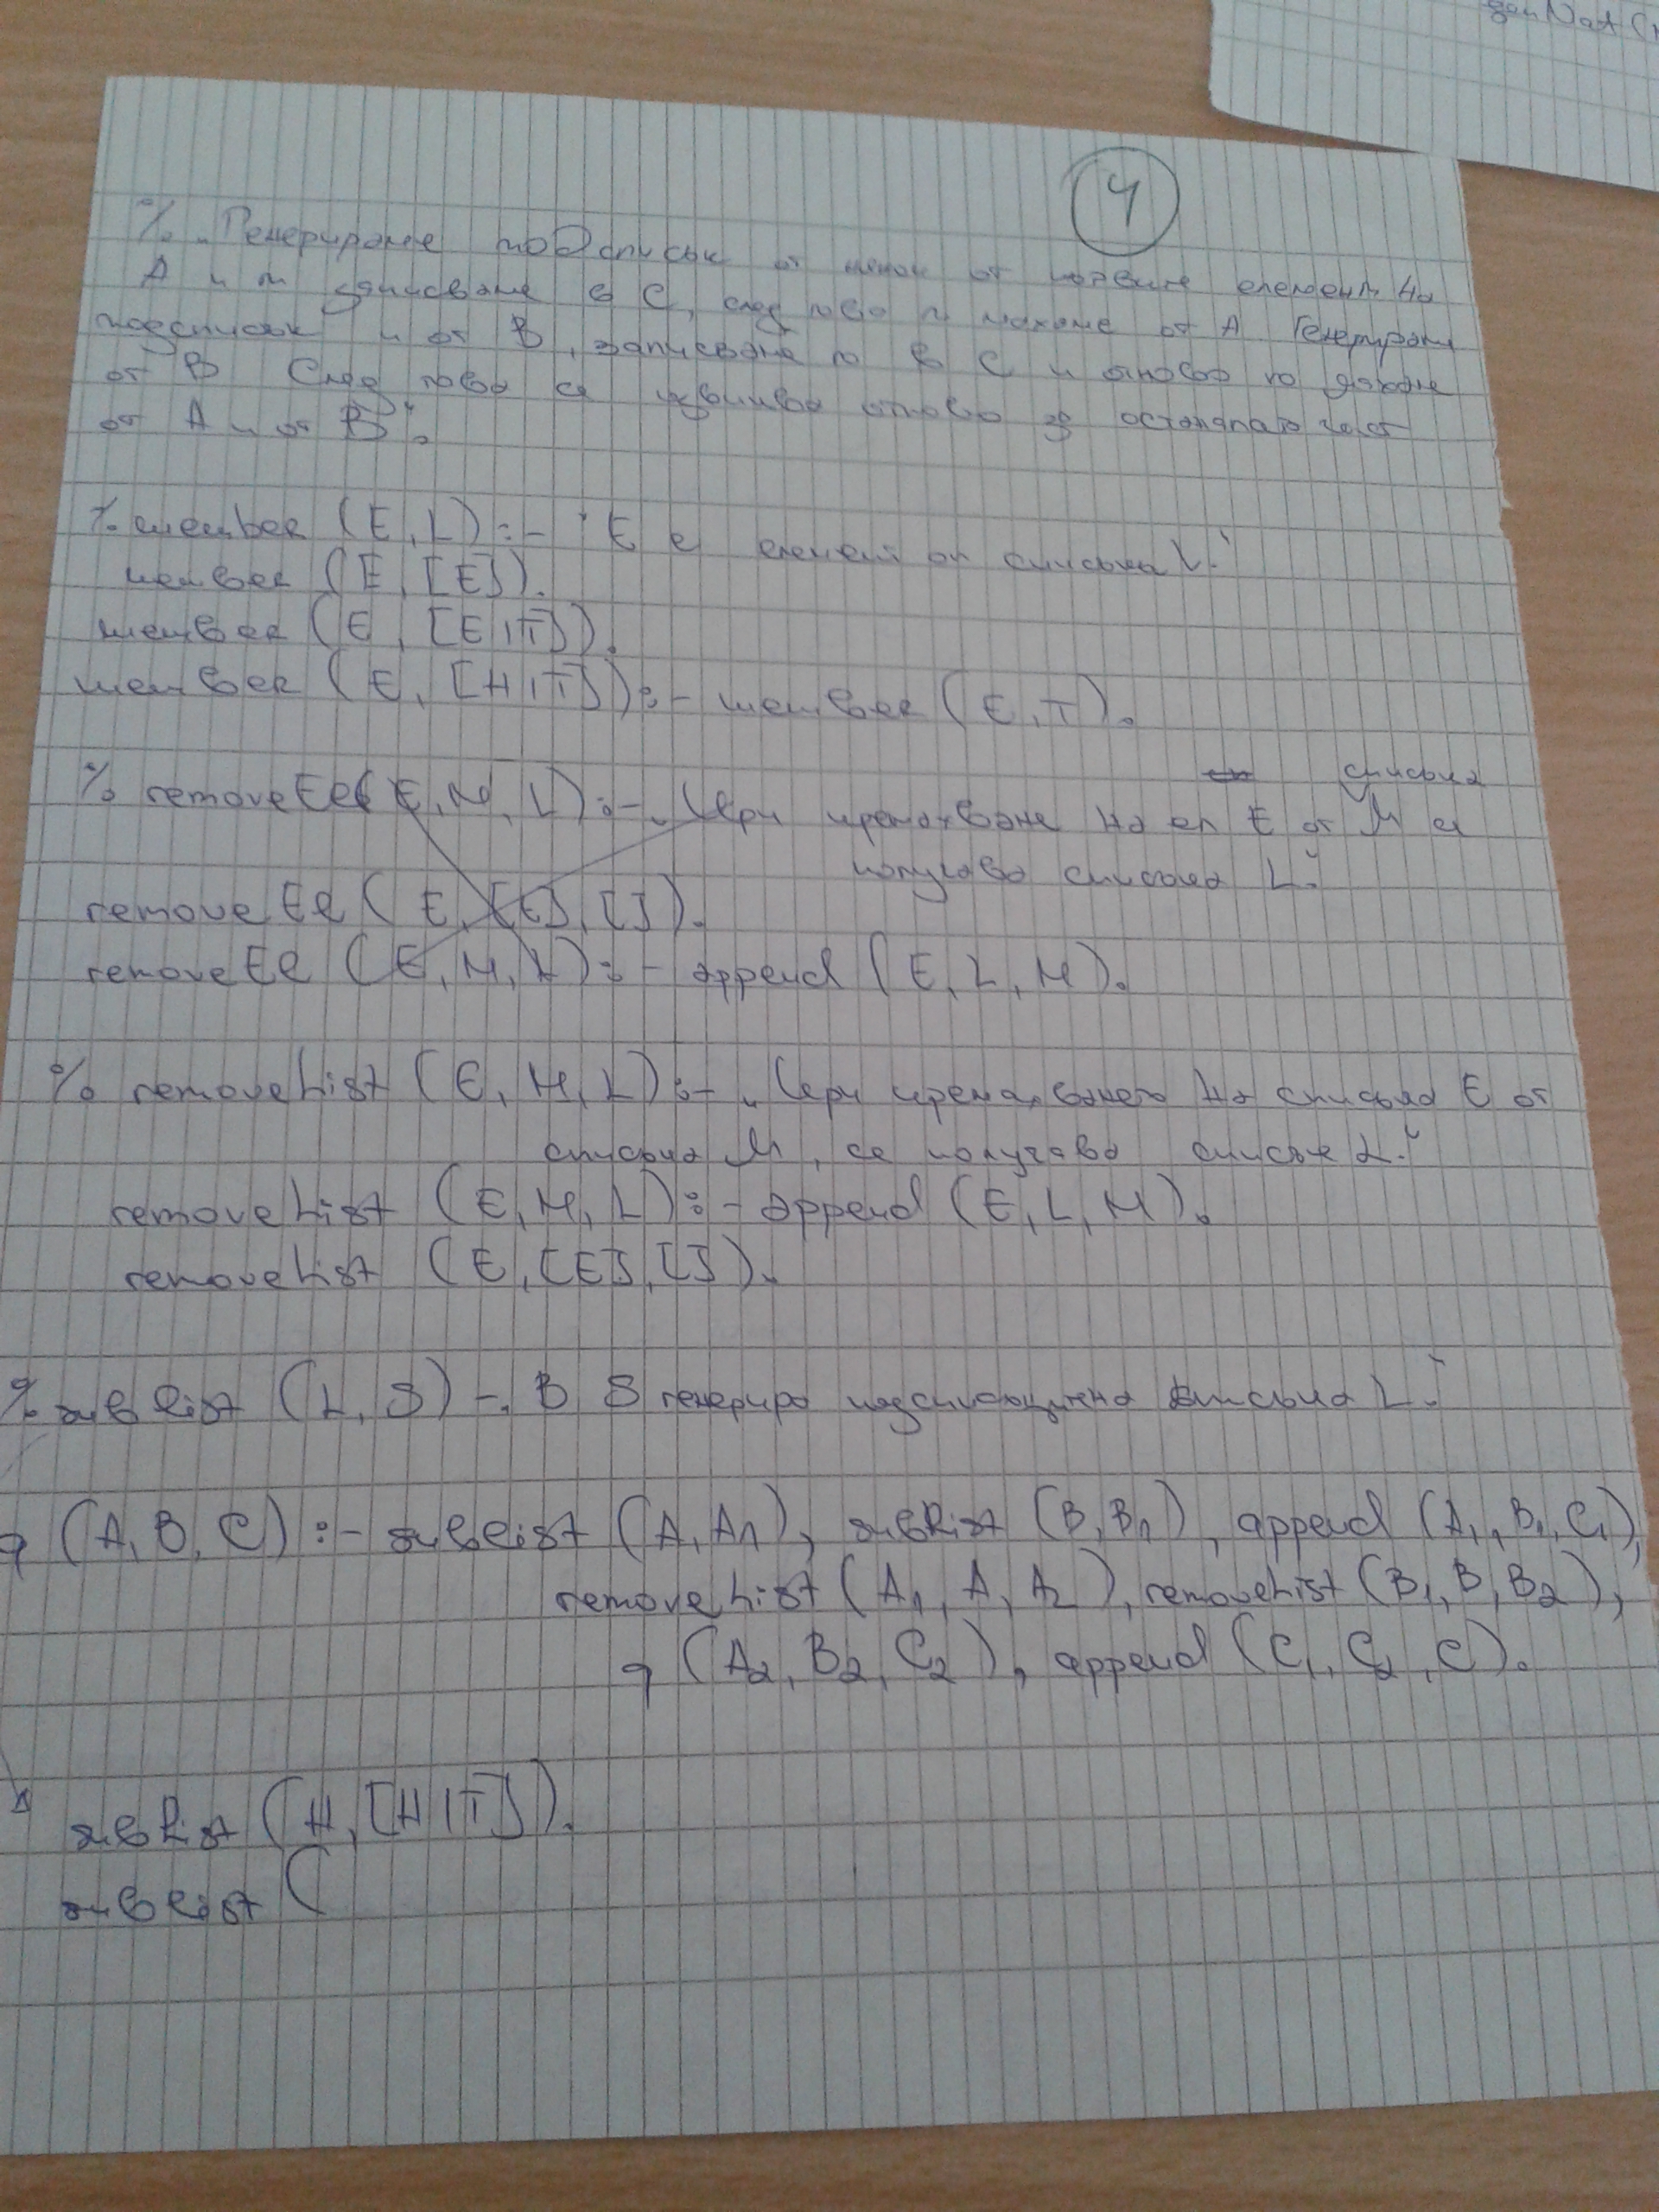 genNat(
4
% „Генериране подсписък от някои от първите елементи на
A и го записваме в C, след това го махаме от A. Генерираме
подсписък и от B, записваме го в C и отново го махаме
от B След това се извиква отново за останалата част
от A и от B“.
% member (E, L) :- "E е елемент от списъка L."
member (E, [E]).
member (E, [E|T]).
member (E, [H|T]) :- member (E, T).
% removeEl (E, M, L) :- „При премахване на ел E от списъка M се
получава списъка L."
removeEl (E, [E], []).
removeEl (E, M, L) :- append (E, L, M).
% removeList (E, M, L) :- „При премахването на списъка E от
списъка M, се получава списък L."
removeList (E, M, L) :- append (E, L, M).
removeList (E, [E], []).
% sublist (L, S) - „В S генерира на списъка L."
q (A, B, C) :- sublist (A, A1), sublist (B, B1), append (A1, B1, C1),
removeList (A1, A, A2), removeList (B1, B, B2),
q (A2, B2, C2), append (C1, C2, C).
sublist (H, [H|T]).
sublist (